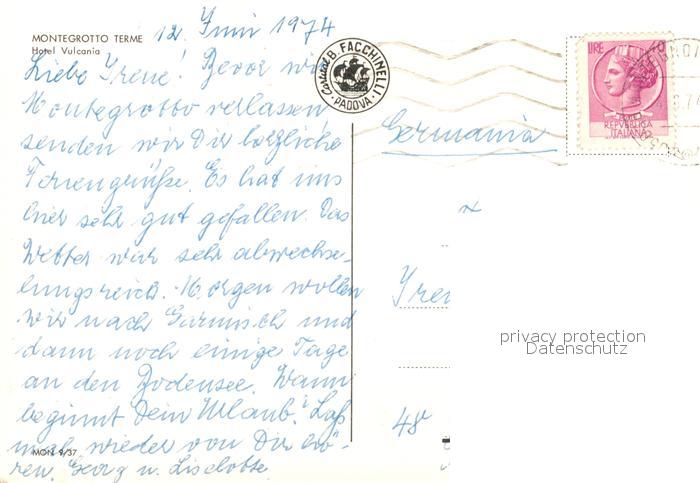 MONTEGROTTO TERME
Hotel Vulcania
12. Juni 1974
Liebe Irene! Bevor wir
Montegrotto verlassen,
senden wir Dir herzliche
Feriengrüße. Es hat uns
hier sehr gut gefallen. Das
Wetter war sehr abwechse-
lungsreich. Morgen wollen
wir nach Garmisch und
dann noch einige Tage
an den Bodensee. Wann
beginnt Dein Urlaub? Laß
mal wieder von Dir hö-
ren. Georg u. Liselotte
MON 9/37
Cartol. B. FACCHINELLI
PADOVA
LIRE
REPVBBLICA
ITALIANA
Germania
Iren
48
privacy protection
Datenschutz